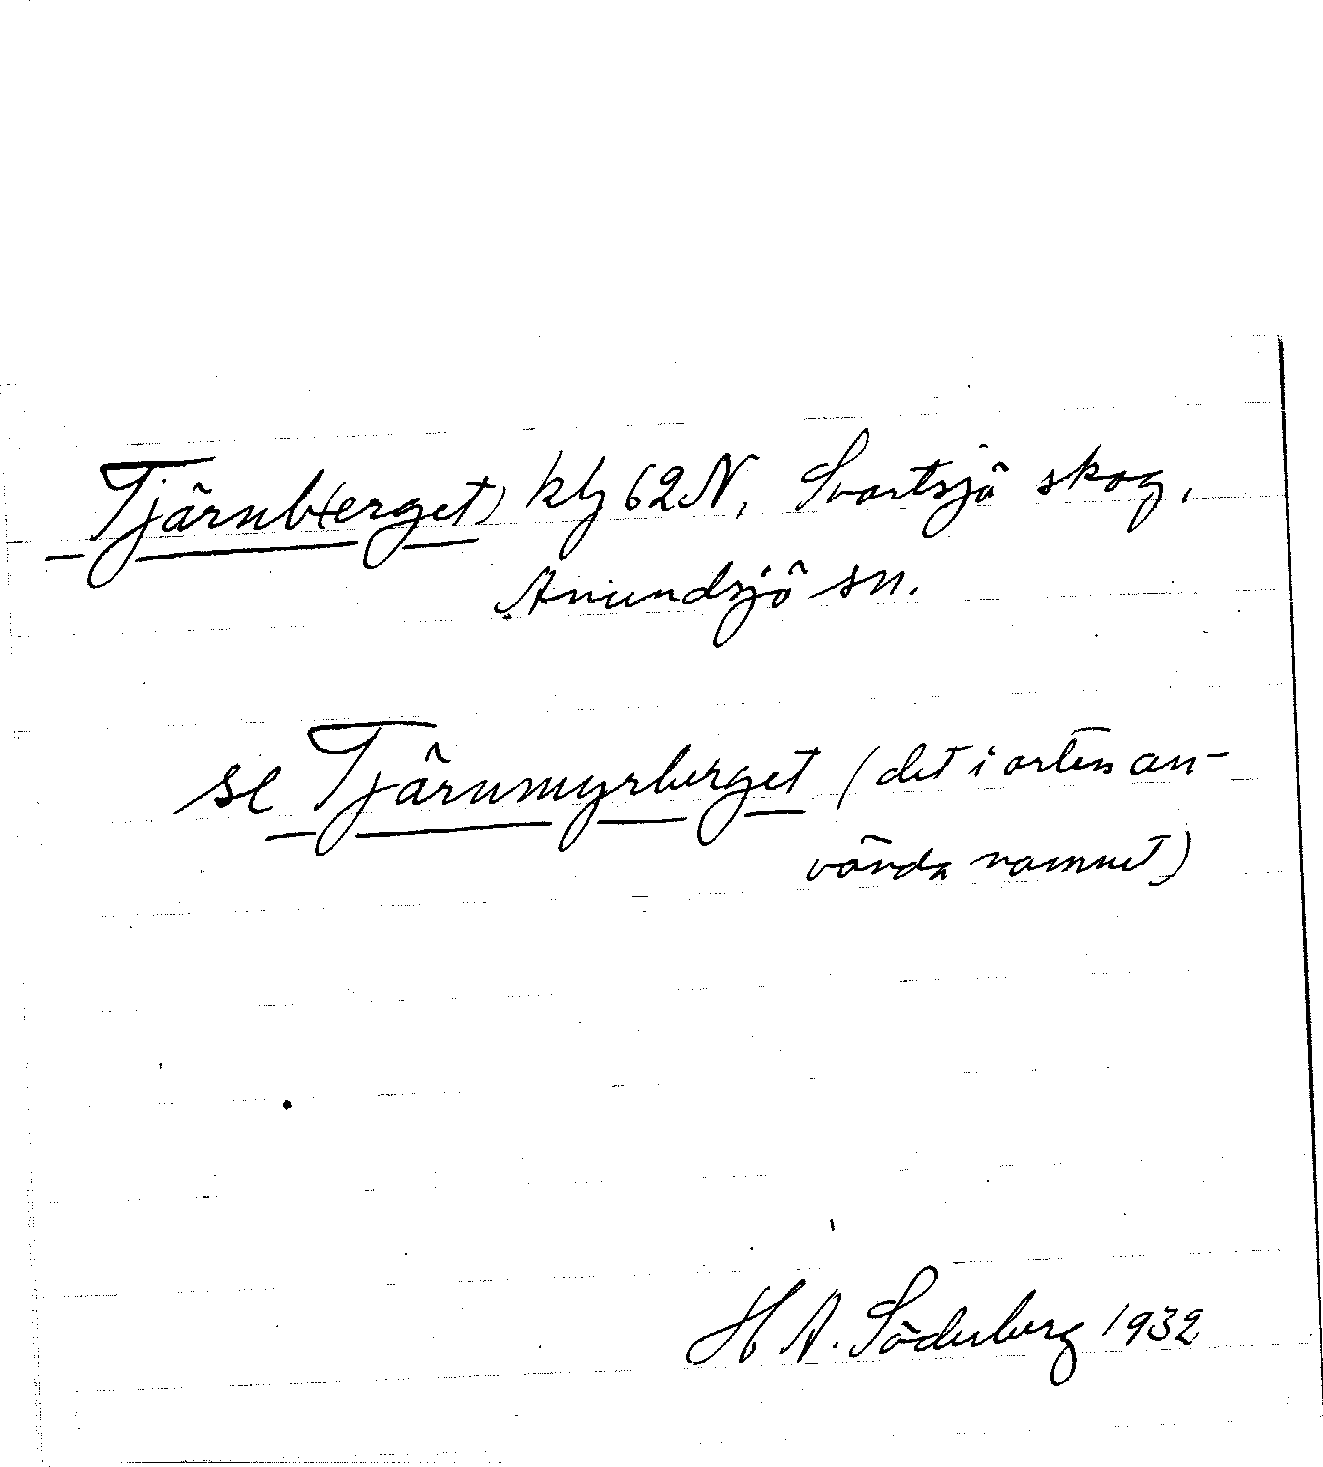 Tjärnb(erget) kbl 62 N, Svartsjö skog,
Anundsjö sn.
se Tjärnmyrberget (det i orten an-
vända namnet)
H A. Söderberg 1932